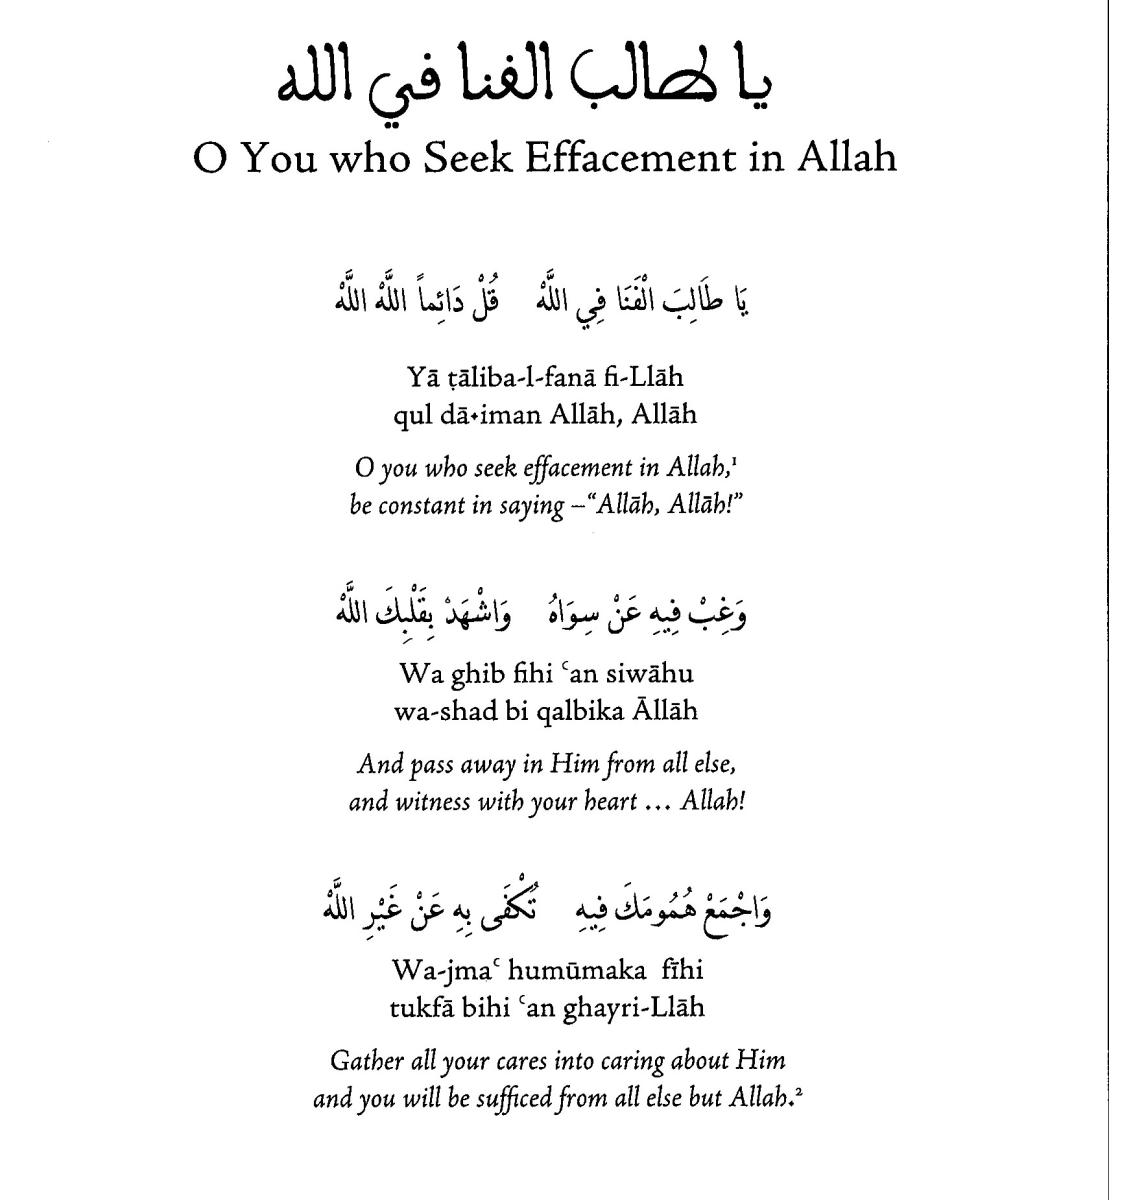 يا طالب الفنا في الله
O You who Seek Effacement in Allah
يَا طَالِبَ الْفَنَا فِي اللَّهْ قُلْ دَائِماً اللَّهْ اللَّهْ
Yā ṭāliba-l-fanā fi-Llāh
qul dā˖iman Allāh, Allāh
O you who seek effacement in Allah,¹
be constant in saying –“Allāh, Allāh!”
وَغِبْ فِيهِ عَنْ سِوَاهُ وَاشْهَدْ بِقَلْبِكَ اللَّهْ
Wa ghib fihi ʿan siwāhu
wa-shad bi qalbika Āllāh
And pass away in Him from all else,
and witness with your heart … Allah!
وَاجْمَعْ هُمُومَكَ فِيهِ تُكْفَى بِهِ عَنْ غَيْرِ اللَّهْ
Wa-jmaʿ humūmaka fīhi
tukfā bihi ʿan ghayri-Llāh
Gather all your cares into caring about Him
and you will be sufficed from all else but Allah.²